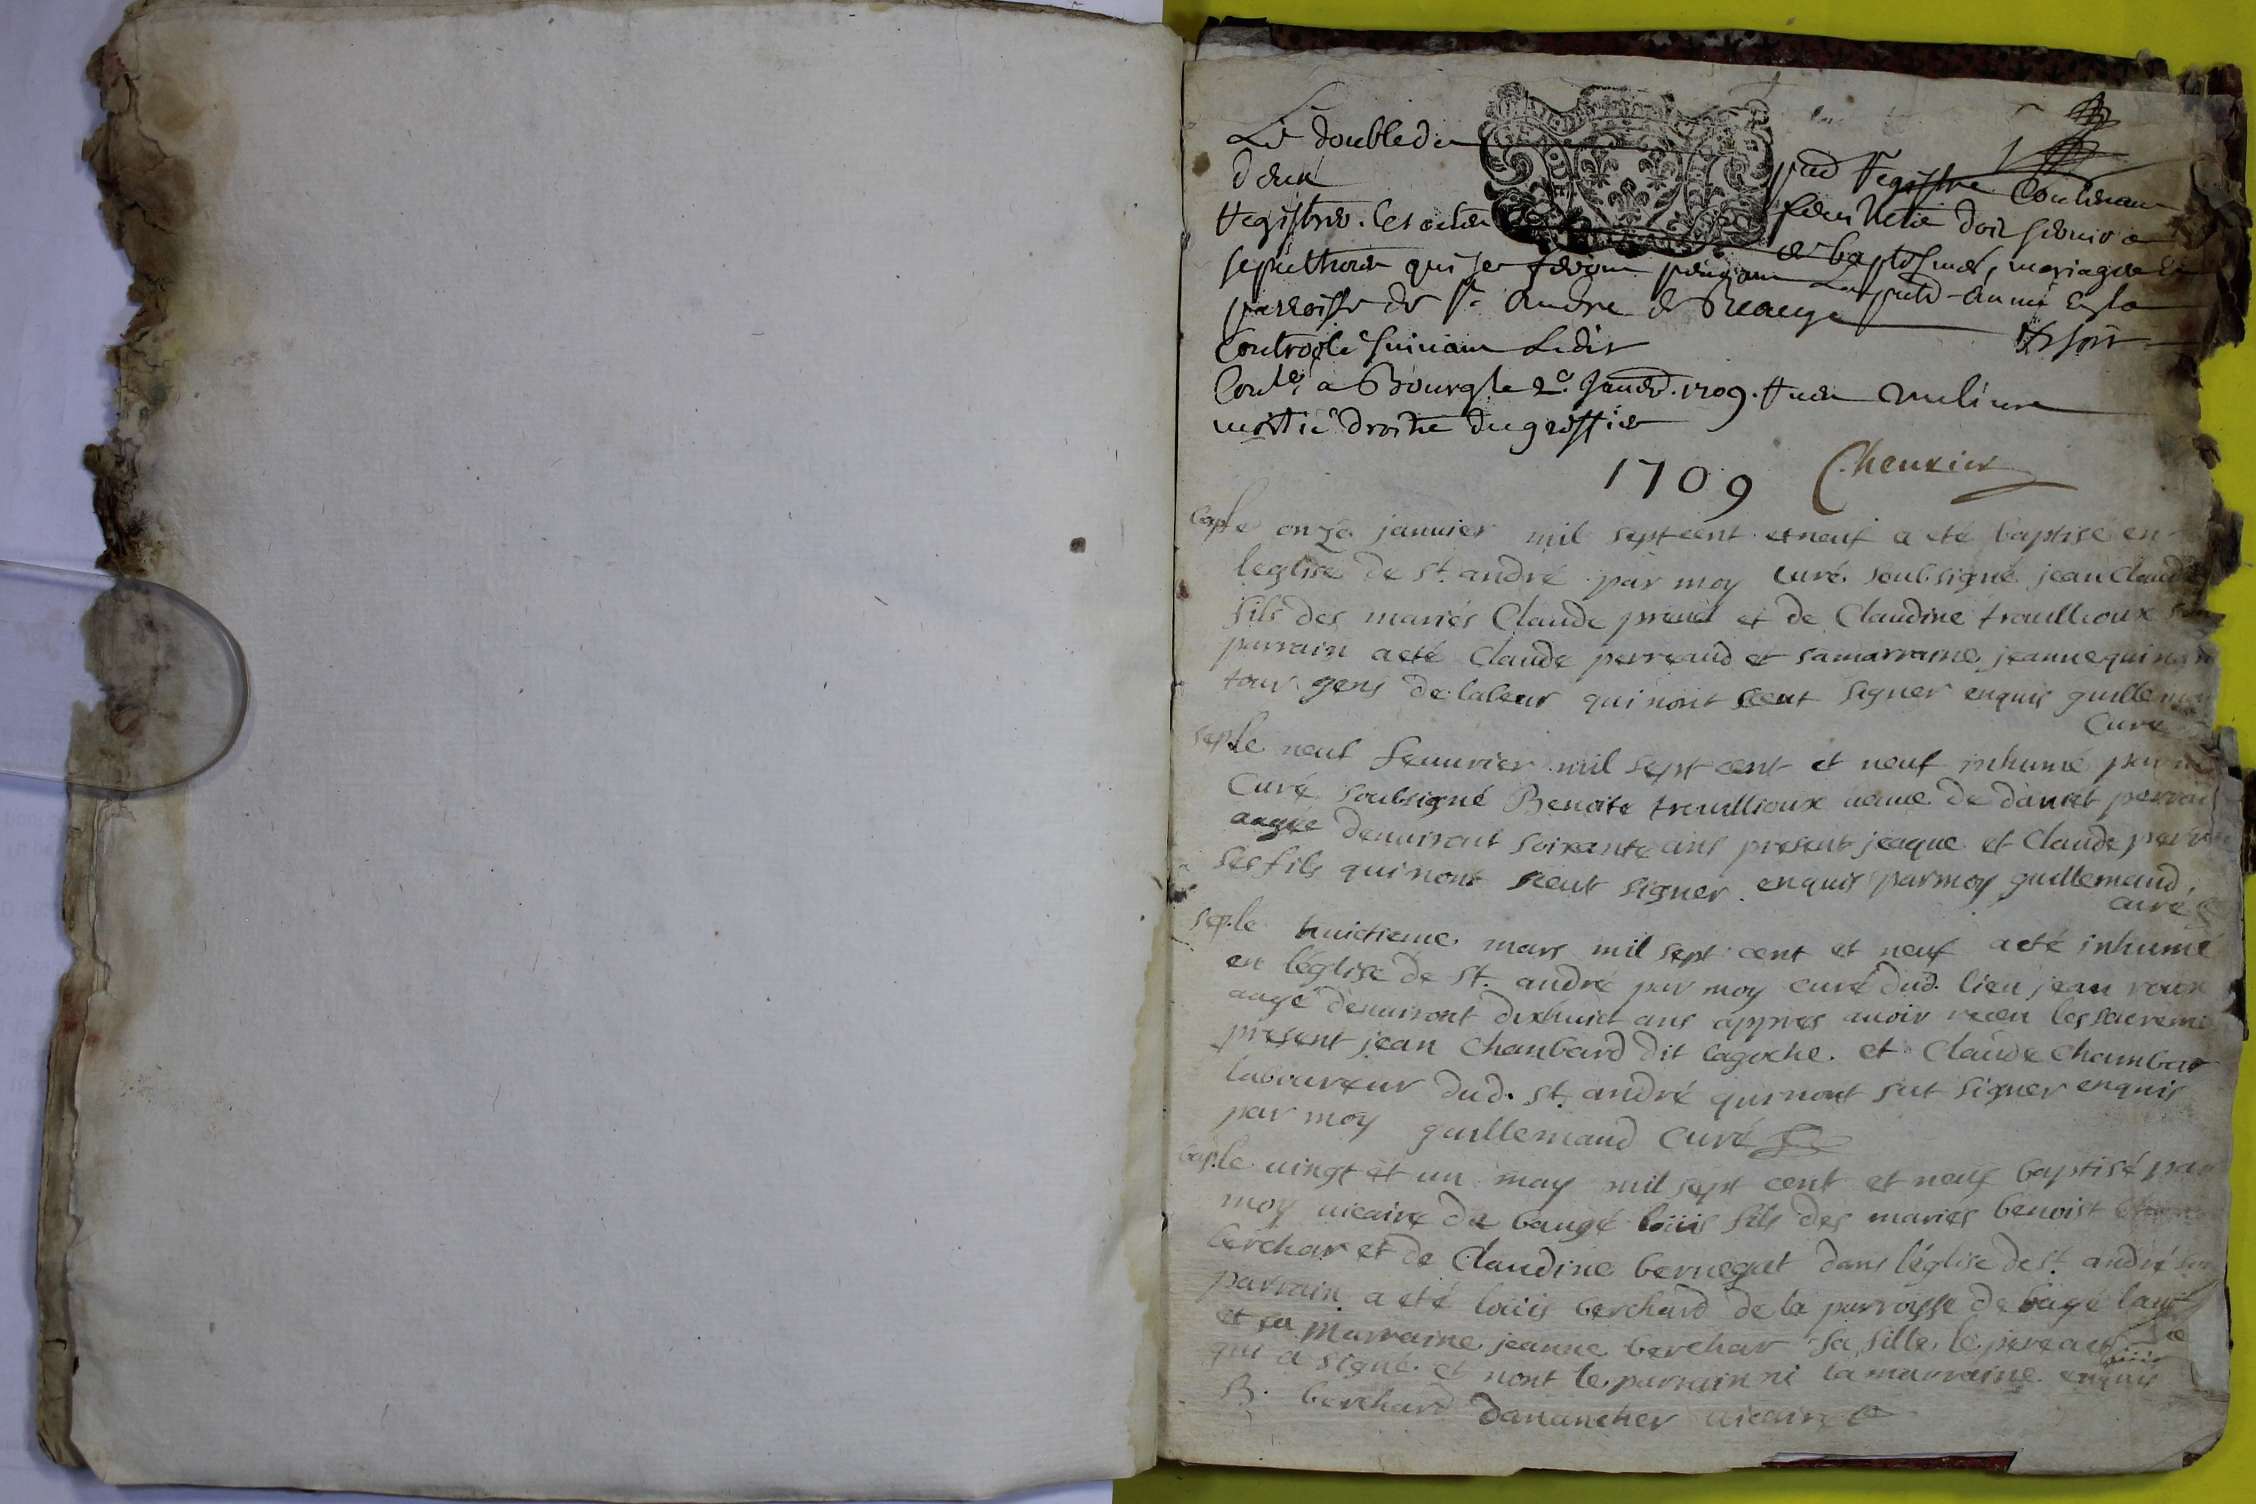 Le double du pnt Registre Contenant
deux feuillets doit servir a
Registrer les actes de baptesmes, mariages Et
sepulthures qui se feron pendant La pnte année En la
parroisse de St André de Beaugé
Controolé suivant Ledit
Conlé a Bourg le 2e Janvr. 1709.
moitié droits du greffier
1709 Cheurier
bap le onze januier mil sept cent et neuf a eté baptisé en
leglise de st. andré par moy curé soubsigné jean claude
fils des mariés Claude et de Claudine trouillioux son
parrain a eté Claude perreaud et sa marraine jeanne
tous gens de labeur qui nont sceut signer enquis guillemaud
curé
sep le neuf feuurier mil sept cent et neuf inhumé par moy
Curé soubsigné Benoite trouillioux ueuue de
aagée denuiront soixante ans present jeaque et Claude
ses fils qui nont sceut signer enquis par moy guillemaud
curé
sep le huictieme mars mil sept cent et neuf a eté inhumé
en léglise de st. andré par moy curé dud. lieu jean roux
aagé denuiront dixhuict ans appres auoir receu les sacremens
present jean Chanbard dit lagoche. et Claude Chambar
laboureur dud. st. andré qui nont sut signer enquis
par moy guillemaud Curé
bap le uingt et un may mil sept cent et neuf baptisé par
moy uicaire de baugé loüis fils des mariés benoist
berchar et de Claudine berneguet dans léglise de st. andré son
parrain a eté loüis berchard de la parroysse de bagé
et sa marraine jeanne berchar sa fille le pere
qui a signé et nont le parrain ni la marraine enquis
B. berchard uicaire